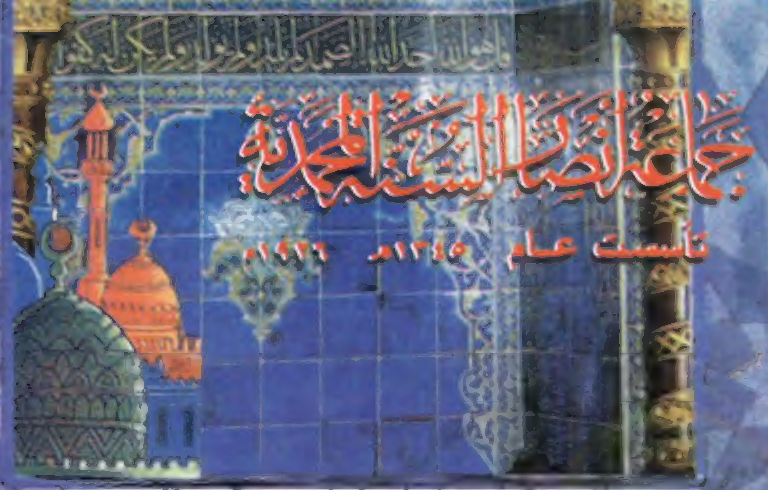 قل هو الله احد الله الصمد لم يلد ولم يولد ولم يكن له كفوا
جماعة أنصار السنة المحمدية
تأسست عام ١٣٤٥هـ ١٩٢٦م